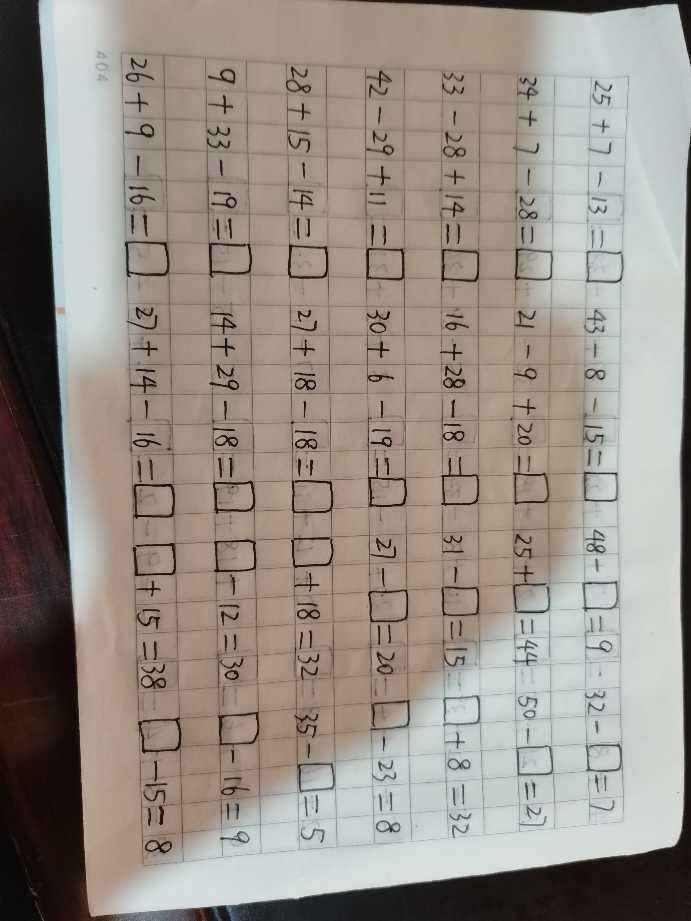 25+7-13=□ 43-8-15=□ 48-□=9 32-□=7
34+7-28=□ 21-9+20=□ 25+□=44 50-□=27
33-28+14=□ 16+28-18=□ 31-□=15 □+8=32
42-29+11=□ 30+6-19=□ 27-□=20 □-23=8
28+15-14=□ 27+18-18=□ □+18=32 35-□=5
9+33-19=□ 14+29-18=□ □-12=30 □-16=9
26+9-16=□ 27+14-16=□ □+15=38 □-15=8
404